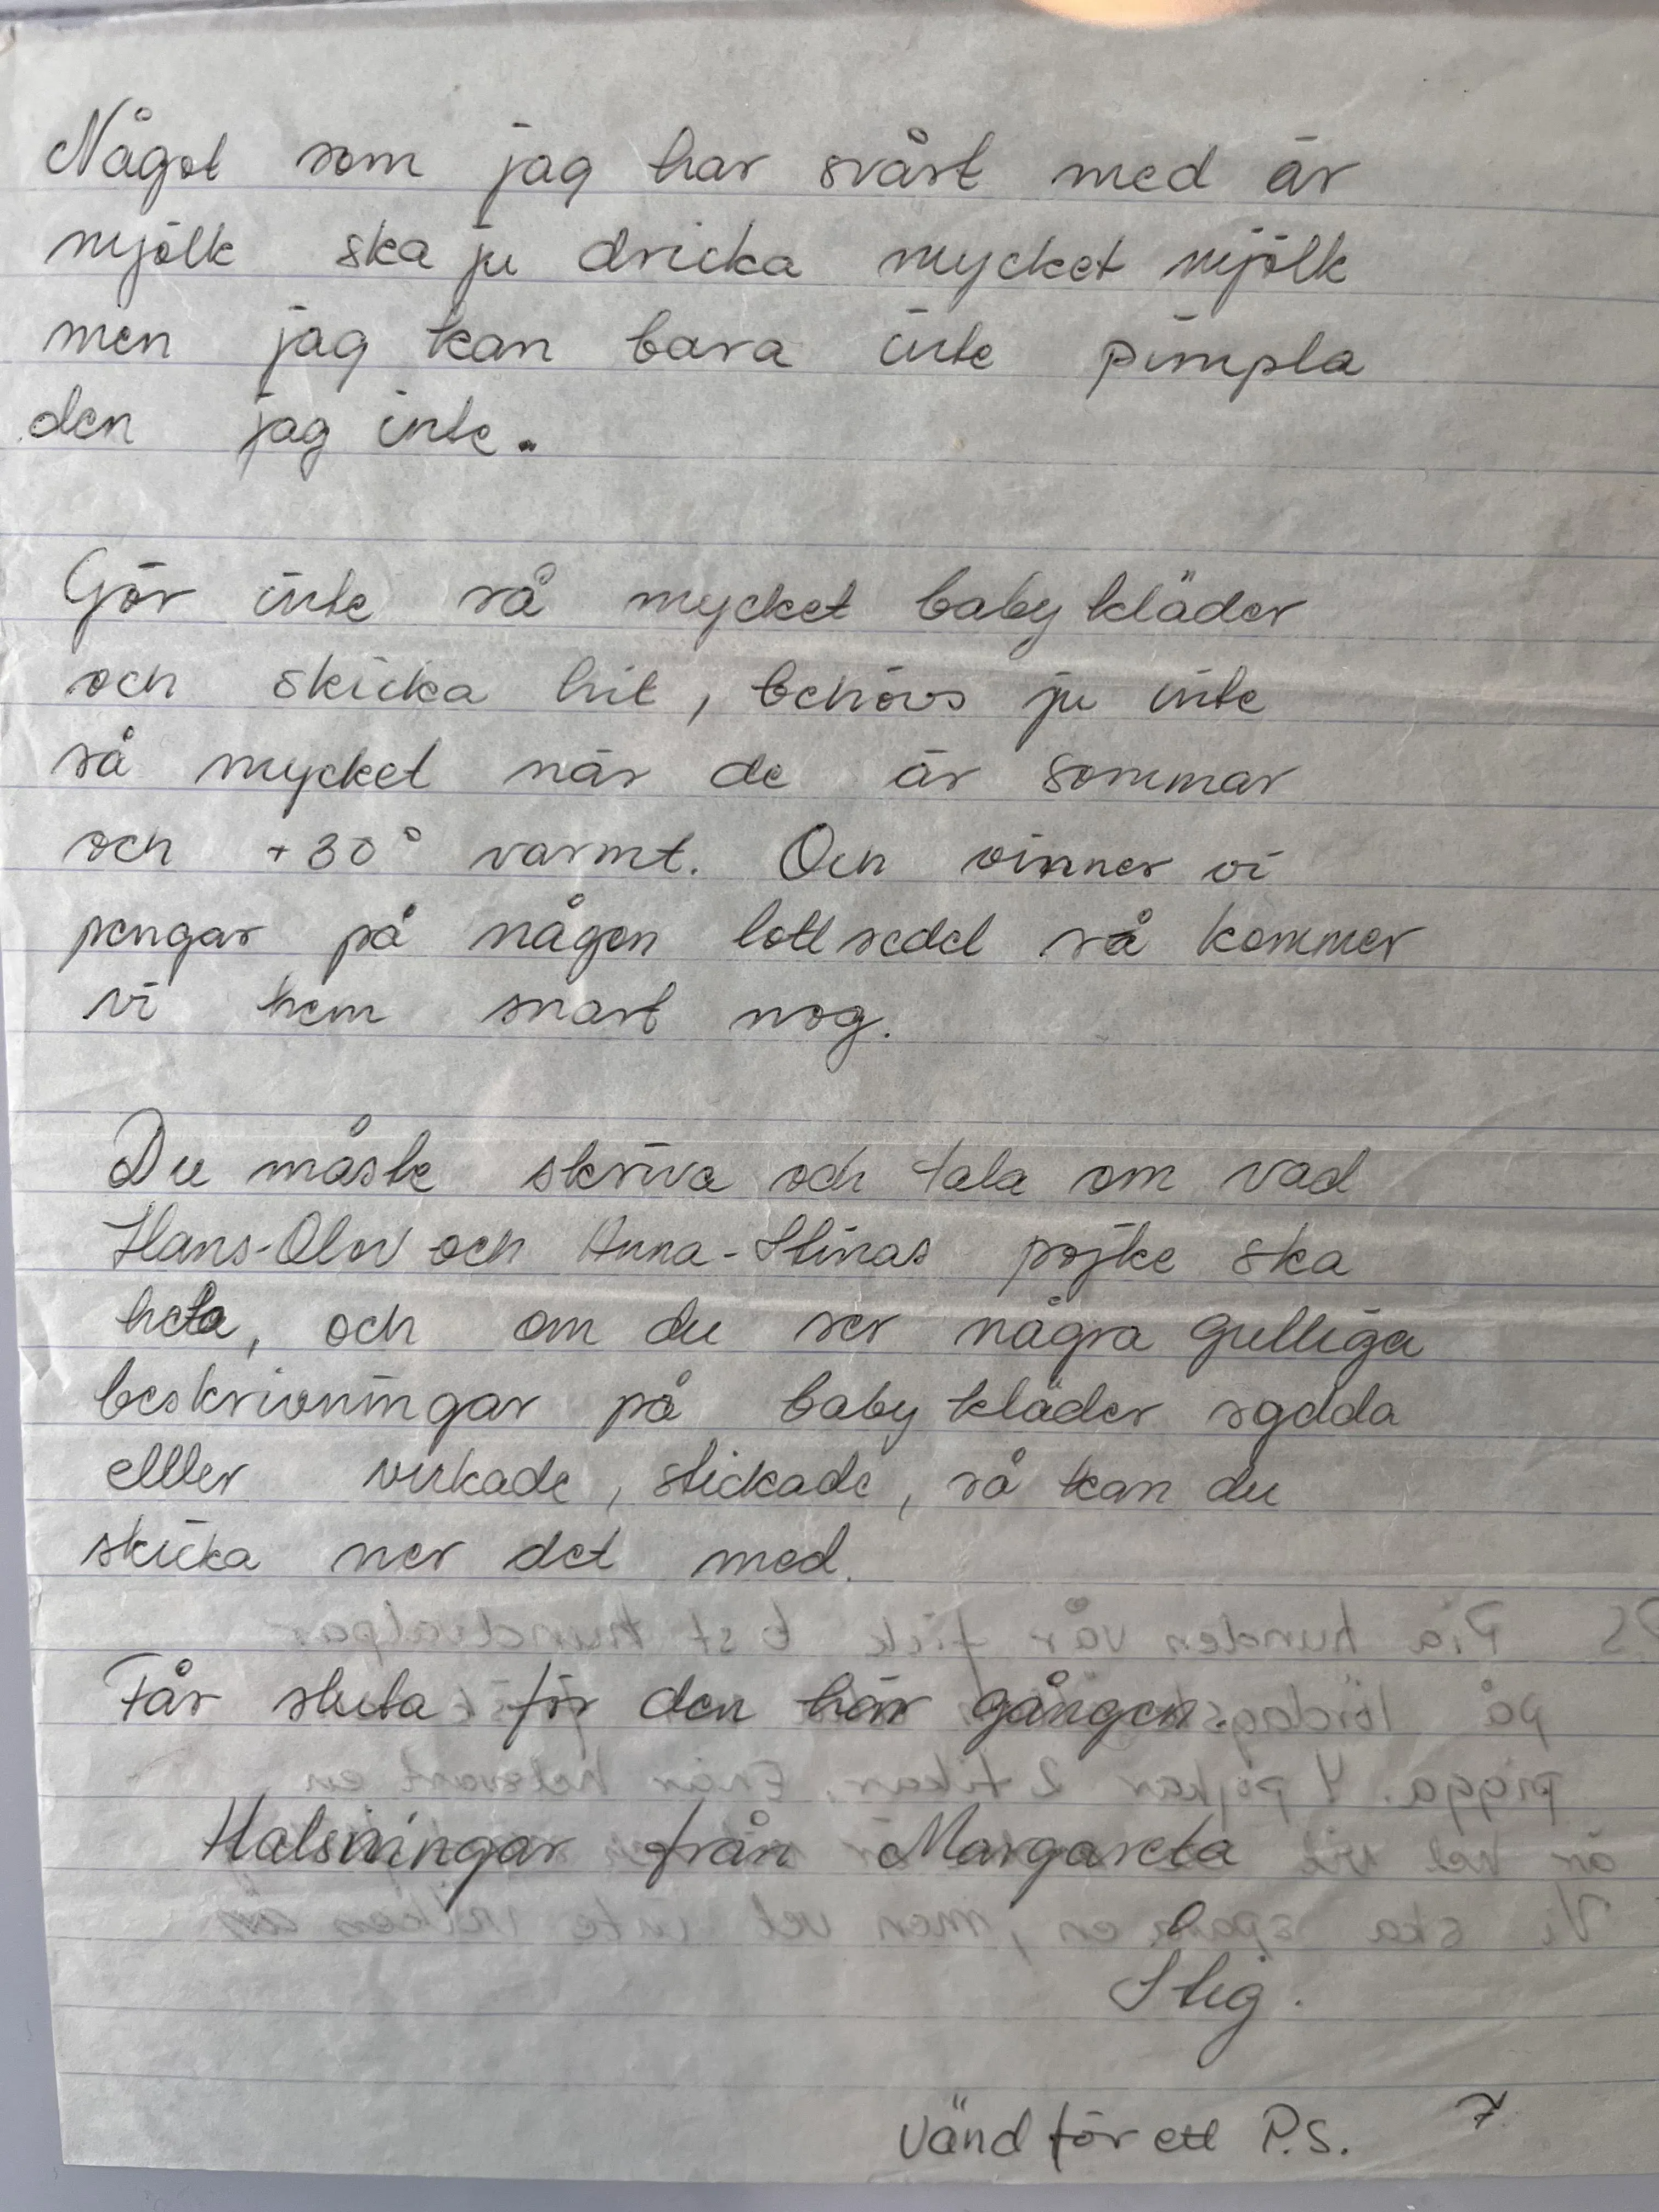 Något som jag har svårt med är
mjölk ska ju dricka mycket mjölk
men jag kan bara inte pimpla
den jag inte.
Gör inte så mycket baby kläder
och skicka hit, behövs ju inte
så mycket när de är sommar
och +30° varmt. Och vinner vi
pengar på någon lott sedel så kommer
vi hem snart nog.
Du måste skriva och tala om vad
Hans-Olov och Anna-Stinas pojke ska
heta, och om du ser några gulliga
beskrivningar på baby kläder sydda
elller virkade, stickade, så kan du
skicka ner det med.
P.S Pia hunden vår fick 6 st hundvalpar
på lördags
Får sluta för den här gången.
pigga. 4 pojkar 2 tikar. en
Halsningar från Margareta
är hel vit
Vi ska spara en, men vet inte vilken än
Stig.
Vänd för ett P.S. 7